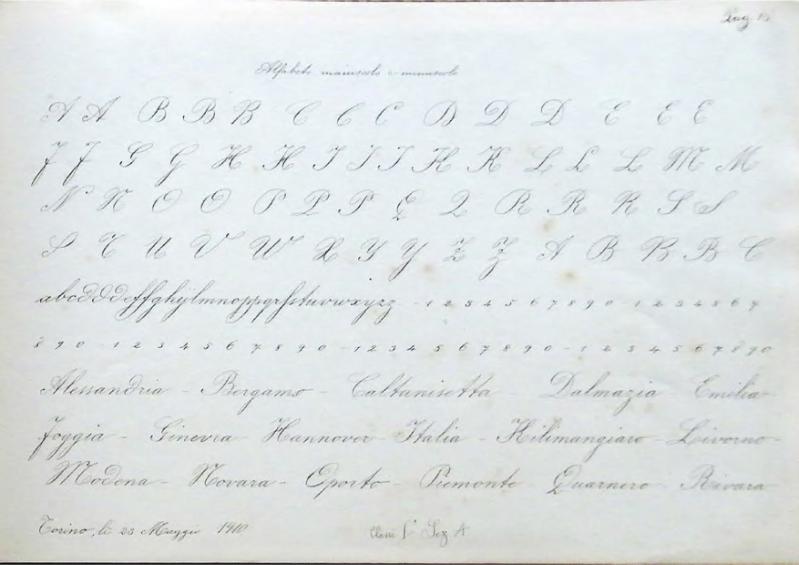 Pag.
Alfabeto maiuscolo e minuscolo
A A B B B C C C D D D E E E
F F G G H H I I I K K L L L M M
N N O O P P P Q Q R R R S S
S T U V W X Y Y Z Z A B B B C
abcdddeffghijlmnoppqrfstuvwxyzz - 1 2 3 4 5 6 7 8 9 0 - 1 2 3 4 5 6 7
8 9 0 - 1 2 3 4 5 6 7 8 9 0 - 1 2 3 4 5 6 7 8 9 0 - 1 2 3 4 5 6 7 8 9 0
Alessandria - Bergamo - Caltanisetta - Dalmazia Emilia
Foggia - Ginevra Hannover Italia - Kilimangiaro Livorno
Modena - Novara - Oporto - Piemonte - Quarnero - Rivara
Torino, li 23 Maggio 1910 I Sez A